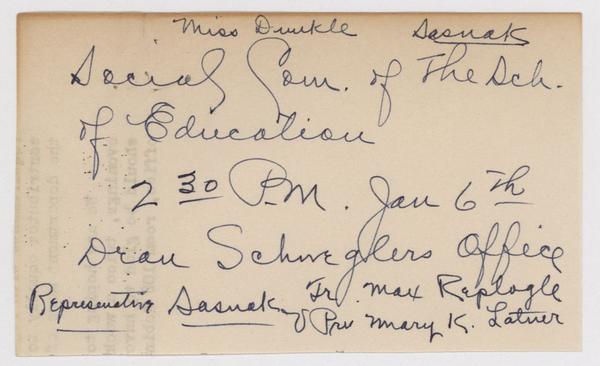 Miss Dunkle Sasnak
Social Com. of The Sch.
of Education
2 30 P.M. Jan 6th
Dean Schweglers Office
Representative Sasnak Tr. Max Replogle
V Prv Mary K. Latner